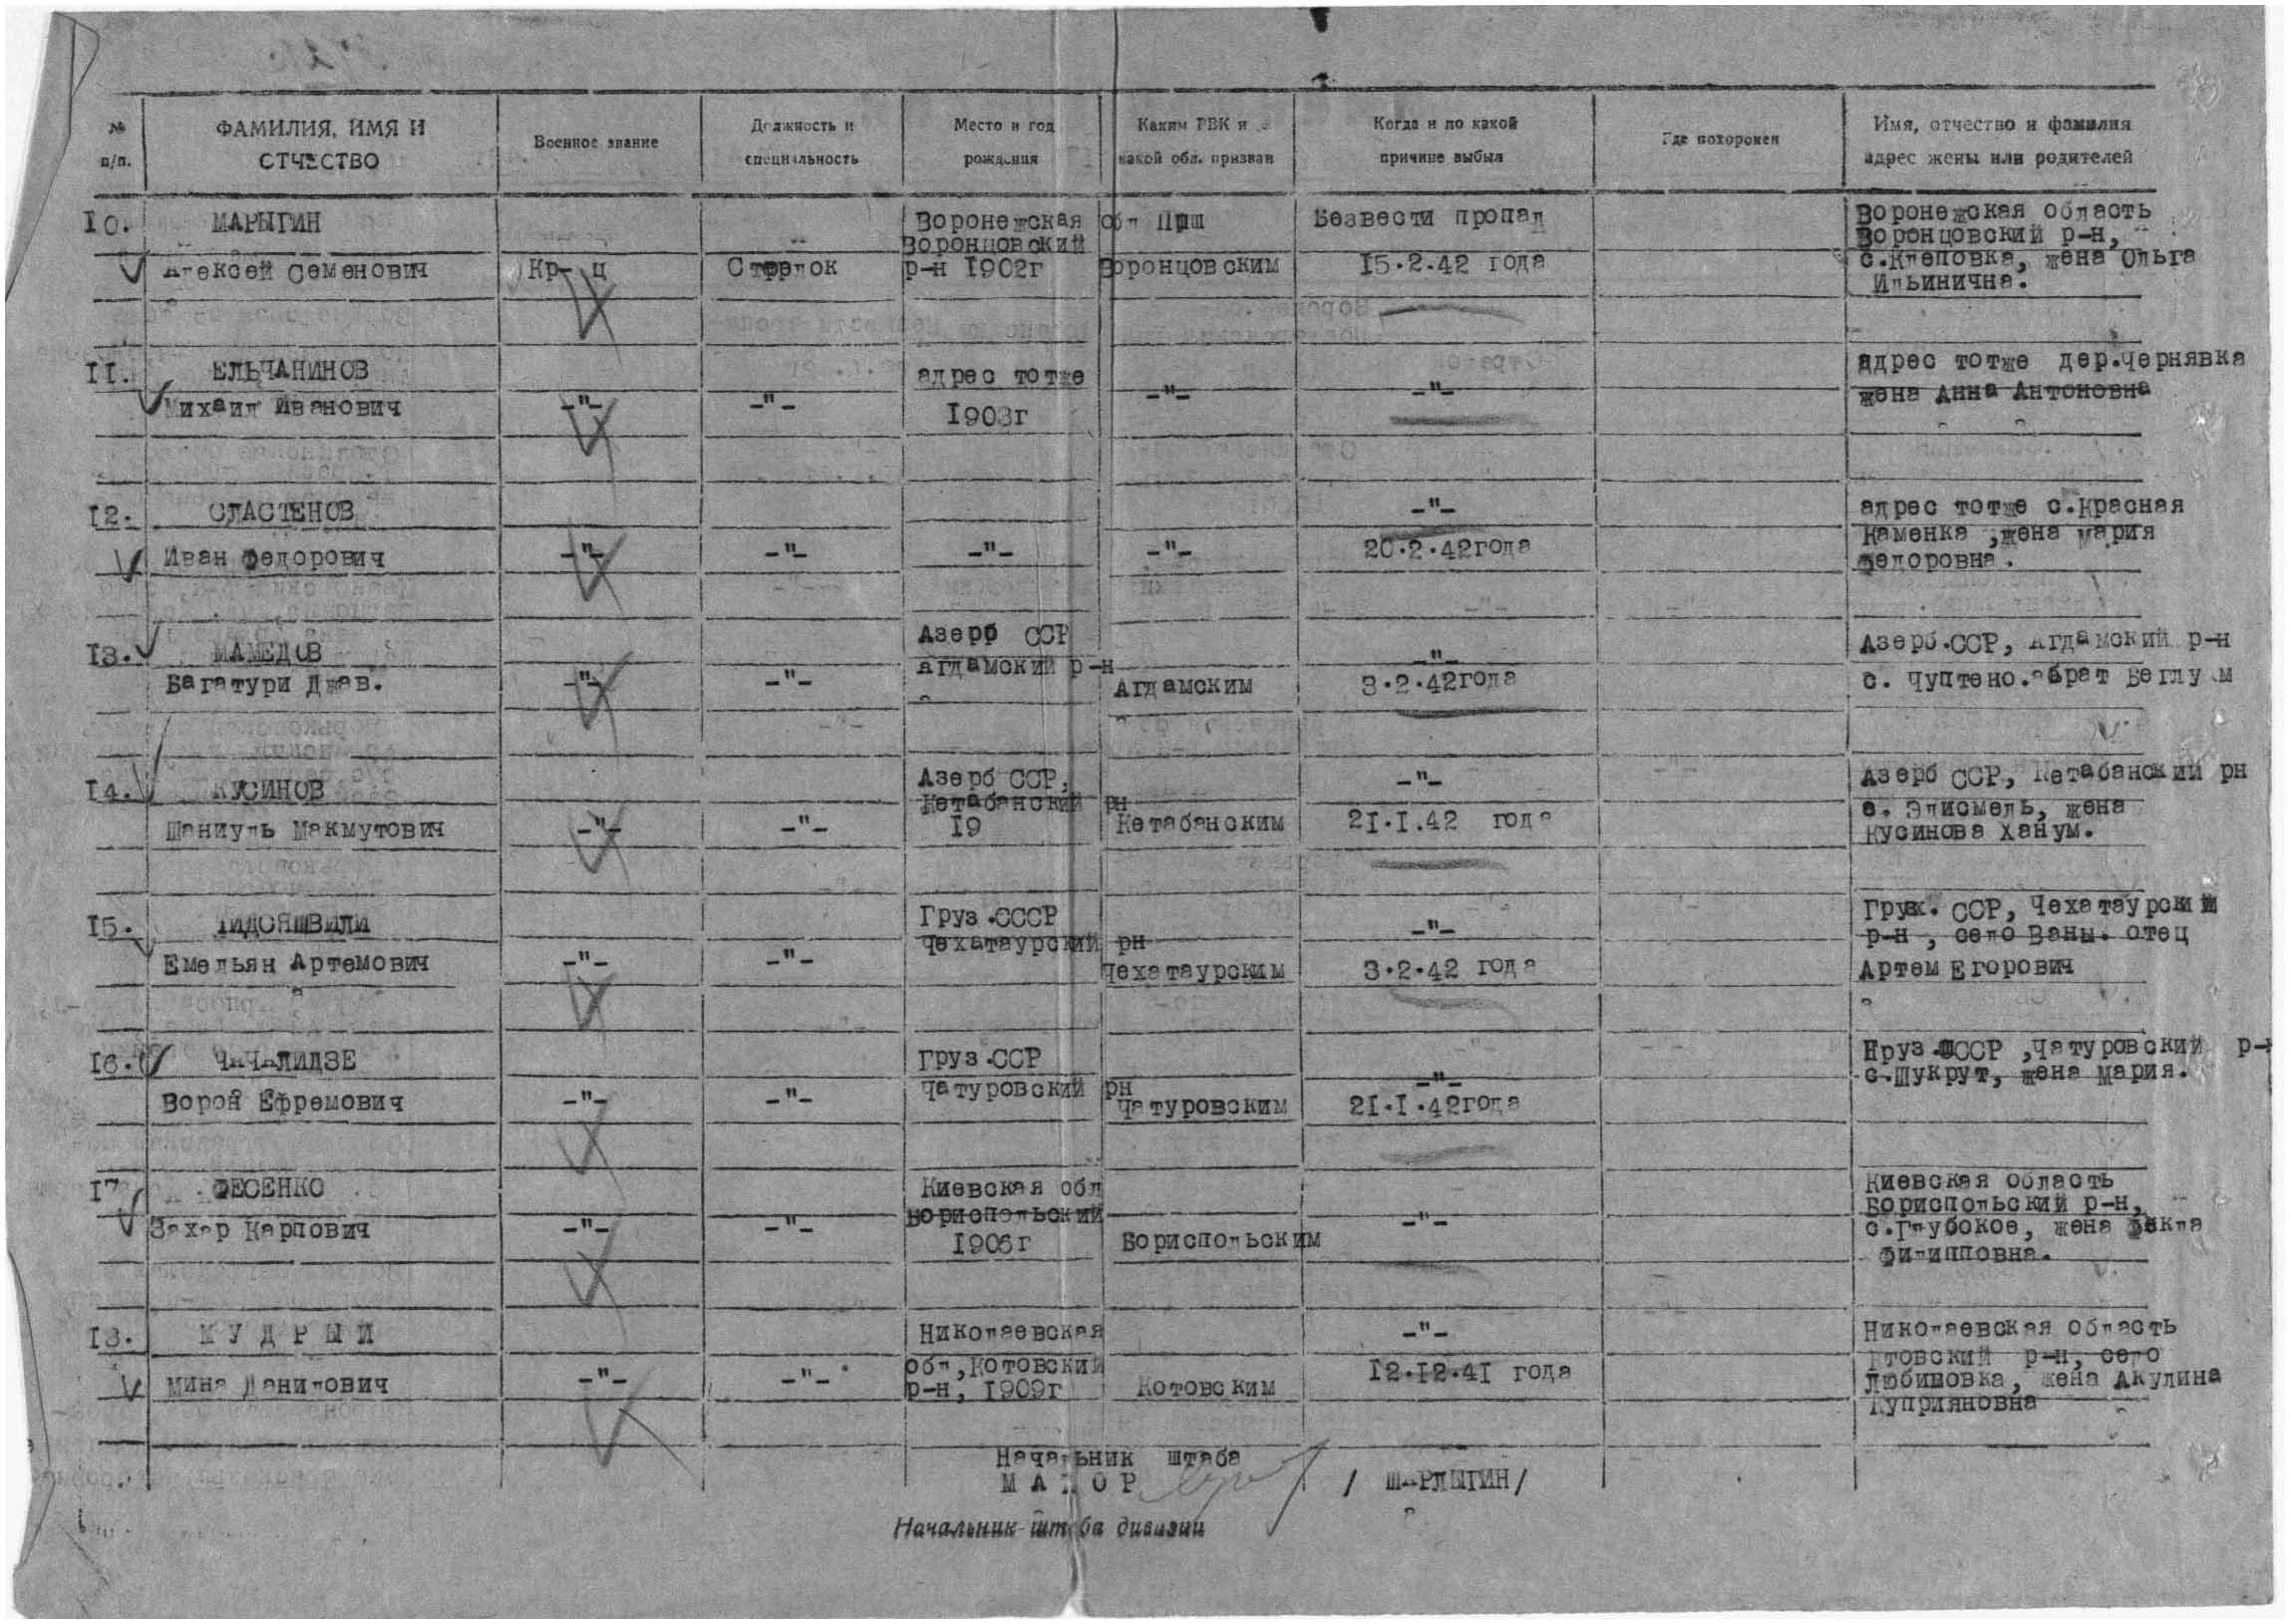 № п/п.
ФАМИЛИЯ, ИМЯ И ОТЧЕСТВО
Военное звание
Должность и специальность
Место и год рождения
Каким РВК и какой обл. призван
Когда и по какой причине выбыл
Где похоронен
Имя, отчество и фамилия адрес жены или родителей
10. МАРЫГИН Воронежская обл Безвести пропал Воронежская область
Воронцовский Воронцовский р-н,
Алексей Семенович Кр-ц Стрелок р-н 1902г Воронцовским 15.2.42 года с.Клеповка, жена Ольга
Ильинична.
11. ЕЛЬЧАНИНОВ адрес тотже адрес тотже дер.Чернявка
Михаил Иванович -"- -"- 1903г -"- -"- жена Анна Антоновна
12. СЛАСТЕНОВ -"- адрес тотже с.Красная
Иван Федорович -"- -"- -"- -"- 20.2.42года Каменка ,жена Мария
Федоровна.
13. МАМЕДОВ Азерб ССР -"- Азерб.ССР, Агдамский р-н
Багатури Джав. -"- -"- Агдамский р-н Агдамским 3.2.42года с. Чуптено. брат
14. КУСИНОВ Азерб ССР, -"- Азерб ССР, Кетабанский рн
Кетабанский рн с. Элисмель, жена
Шаниуль Макмутович -"- -"- 19 Кетабанским 21.1.42 года Кусинова Ханум.
15. Груз.СССР Груж. ССР, Чехатаурский
Чехатаурский рн -"- р-н , село Ваны. отец
Емельян Артемович -"- -"- Чехатаурским 3.2.42 года Артем Егорович
16. ЧАЧАЛИДЗЕ Груз.ССР ,Чатуровский р-н
Чатуровский рн -"- с.Шукрут, жена Мария.
Ворой Ефремович -"- -"- Чатуровским 21.1.42года
17 ФЕСЕНКО Киевская обл Киевская область
Бориспольский Бориспольский р-н,
Захар Карпович -"- -"- 1906г Бориспольским -"- с.Глубокое, жена Фекла
Филипповна.
18. МУДРЫЙ Николаевская -"- Николаевская область
обл,Котовский 12.12.41 года р-н, село
Мина Данилович -"- -"- р-н, 1909г Котовским Любимовка, жена Акулина
Куприяновна
Начальник штаба
МАЙОР / ШАРЛЫГИН/
Начальник штаба дивизии